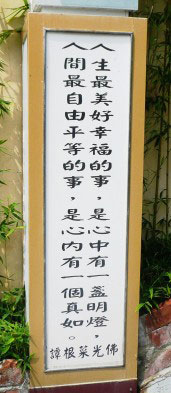 人生最美好幸福的事，是心中有一盞明燈，
人間最自由平等的事，是心內有一個真如。
佛光菜根譚